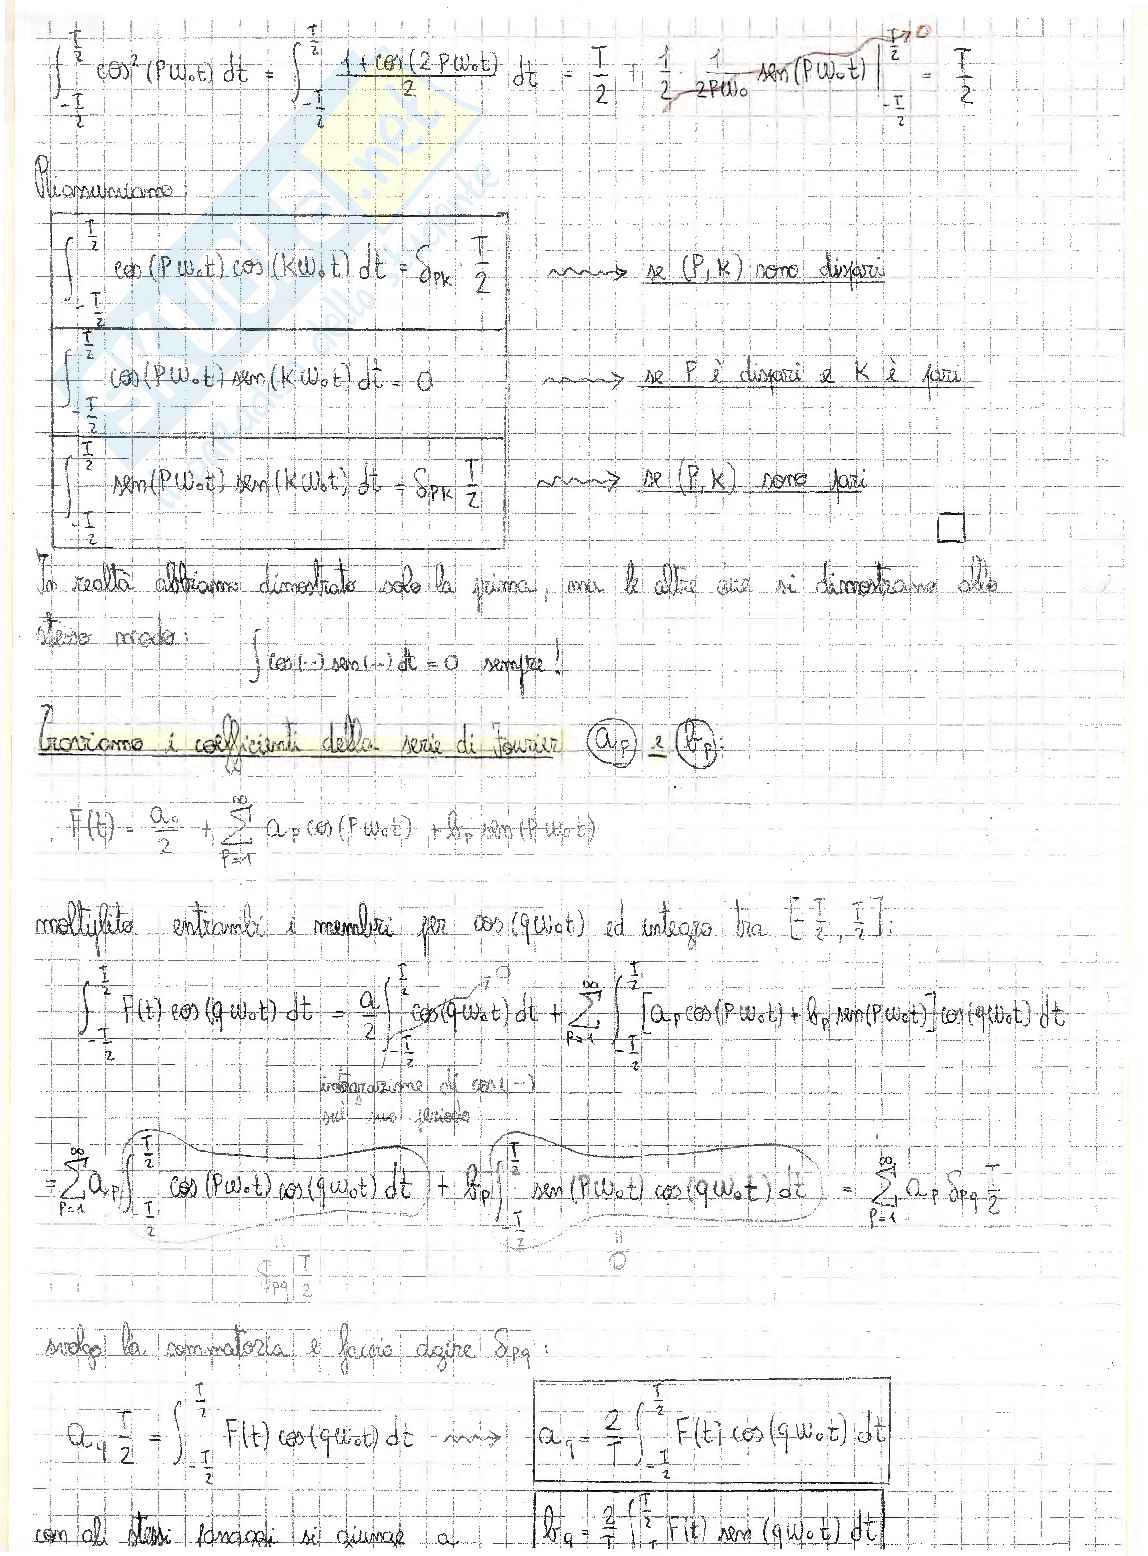 ∫_{-T/2}^{T/2} cos²(pω₀t) dt = ∫_{-T/2}^{T/2} (1+cos(2pω₀t))/2 dt = T/2 + 1/2 · 1/(2pω₀) sen(pω₀t) |_{-T/2}^{T/2} → 0 = T/2
Riassumiamo:
∫_{-T/2}^{T/2} cos(pω₀t) cos(kω₀t) dt = δ_{pk} T/2 ⟿ se (P,K) sono dispari
∫_{-T/2}^{T/2} cos(pω₀t) sen(kω₀t) dt = 0 ⟿ se P è dispari e K è pari
∫_{-T/2}^{T/2} sen(pω₀t) sen(kω₀t) dt = δ_{pk} T/2 ⟿ se (P,K) sono pari
□
In realtà abbiamo dimostrato solo la prima, ma le altre due si dimostrano allo
stesso modo:
∫ cos(--) sen(--) dt = 0 sempre!
Troviamo i coefficienti della serie di Fourier a_p e b_p:
F(t) = a₀/2 + Σ_{p=1}^{∞} a_p cos(pω₀t) + b_p sen(pω₀t)
moltiplico entrambi i membri per cos(qω₀t) ed integro tra [-T/2, T/2]:
∫_{-T/2}^{T/2} F(t) cos(qω₀t) dt = a/2 ∫_{-T/2}^{T/2} cos(qω₀t) dt → 0 + Σ_{p=1}^{∞} ∫_{-T/2}^{T/2} [a_p cos(pω₀t) + b_p sen(pω₀t)] cos(qω₀t) dt
integrazione di cos(--)
sul suo periodo
= Σ_{p=1}^{∞} a_p ∫_{-T/2}^{T/2} cos(pω₀t) cos(qω₀t) dt + b_p ∫_{-T/2}^{T/2} sen(pω₀t) cos(qω₀t) dt = Σ_{p=1}^{∞} a_p δ_{pq} T/2
= δ_{pq} T/2 = 0
svolgo la sommatoria e faccio agire δ_{pq}:
a_q T/2 = ∫_{-T/2}^{T/2} F(t) cos(qω₀t) dt ⟿ a_q = 2/T ∫_{-T/2}^{T/2} F(t) cos(qω₀t) dt
con gli stessi passaggi si giunge a b_q = 2/T ∫^{T/2} F(t) sen(qω₀t) dt
SKUOLA.net